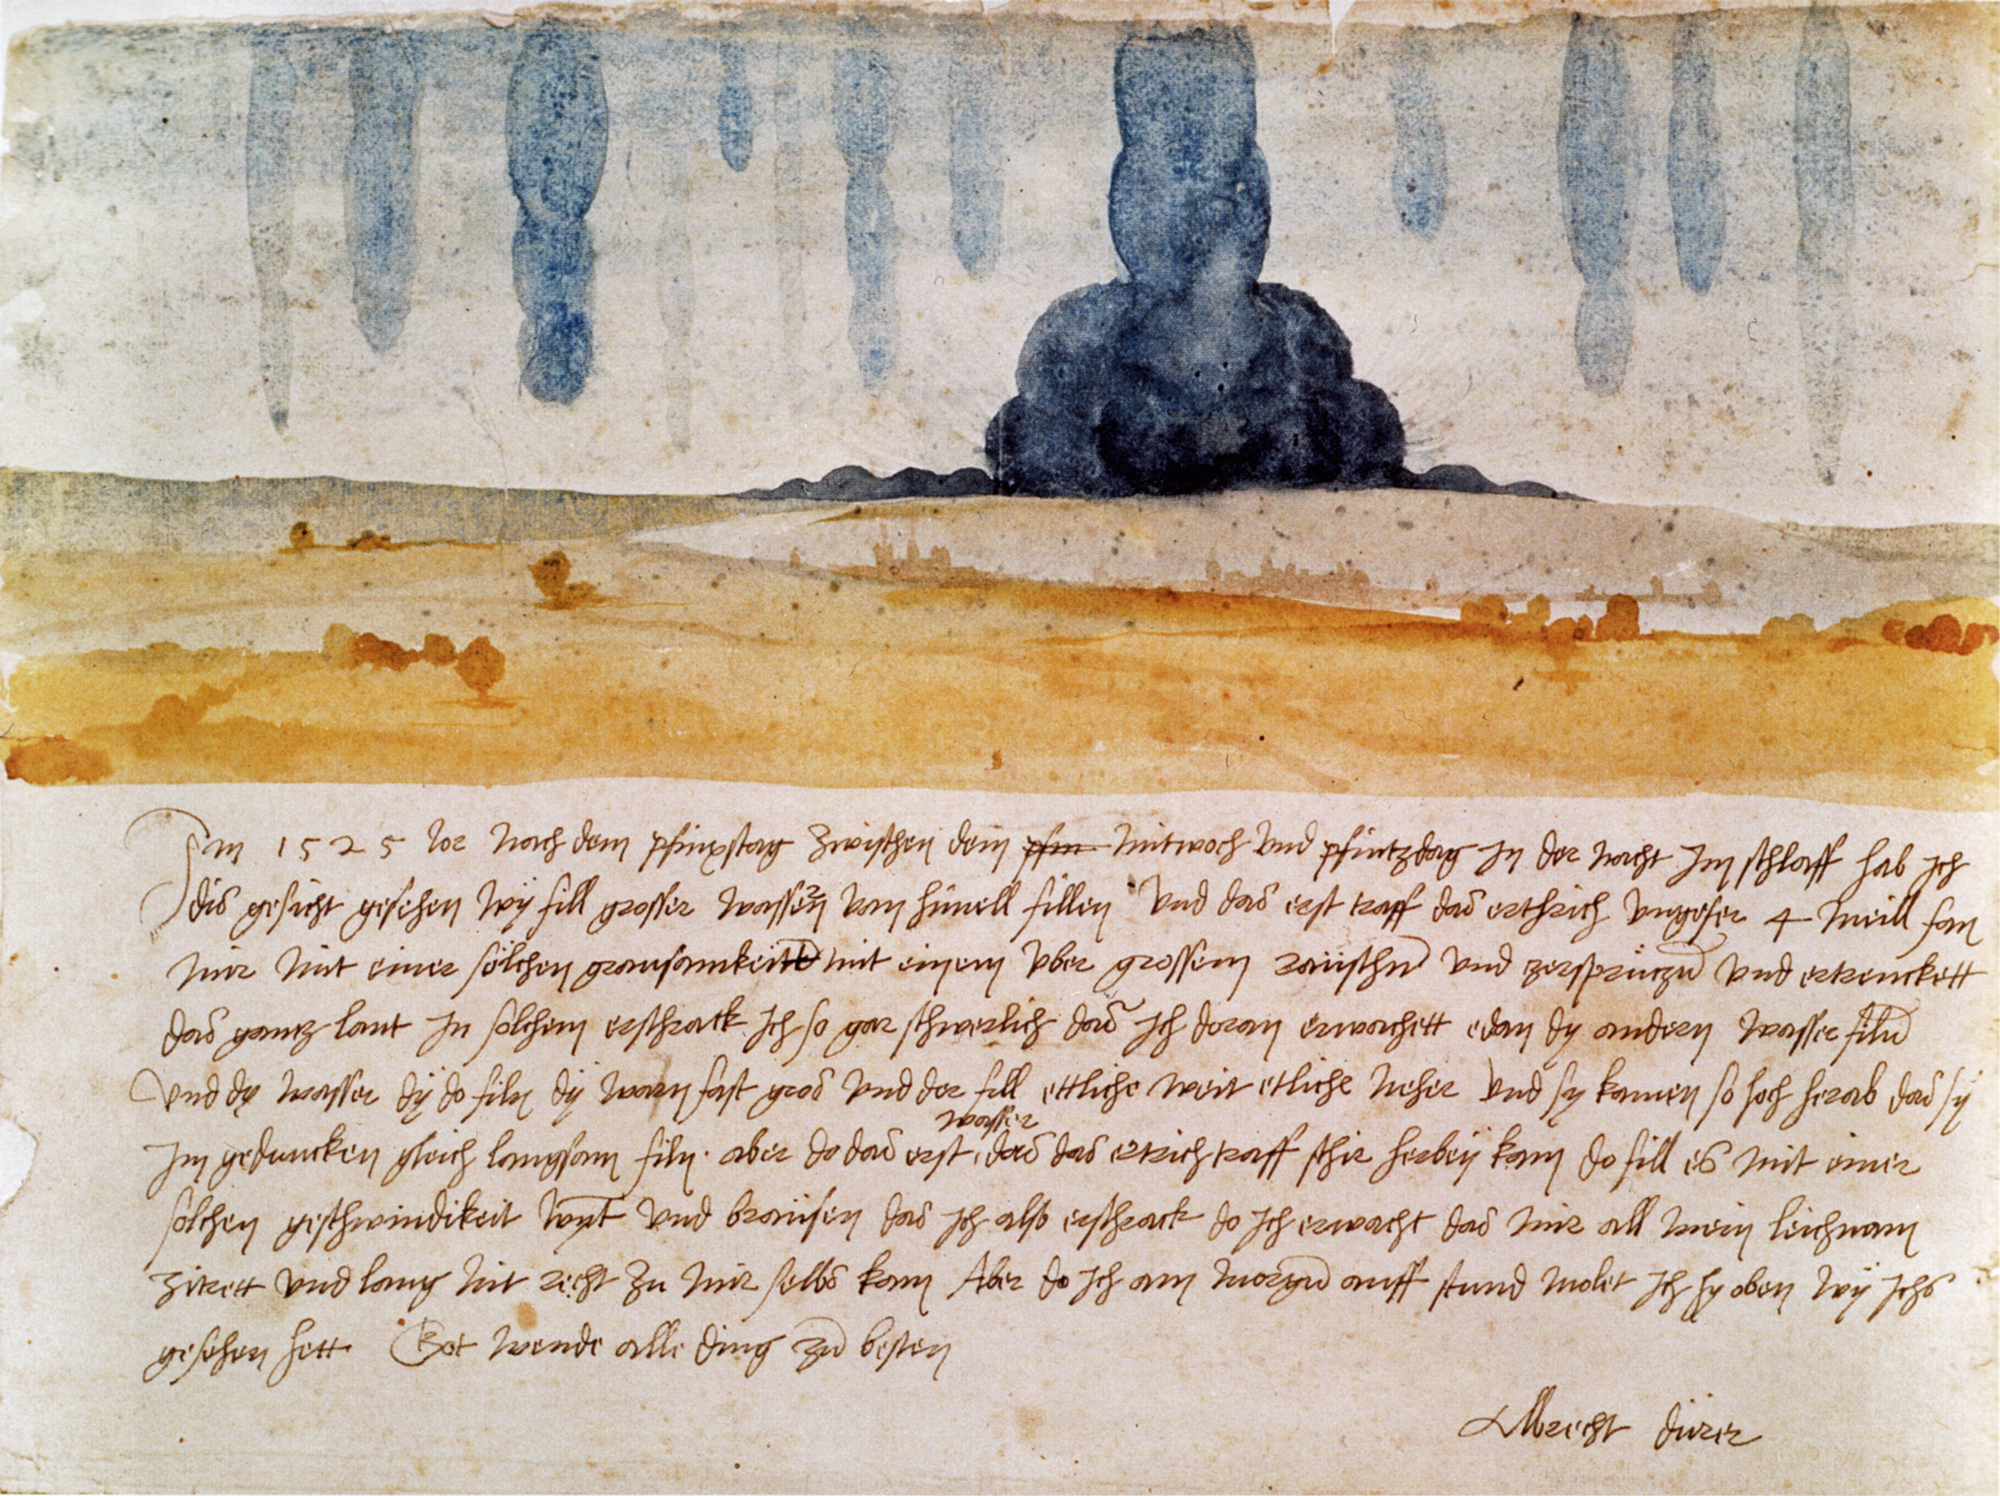 Im 1525 Jor nach dem pfinxstag zwischen dem pfin mitwoch und pfintzdag in der nacht im schlaff hab ich
dis gesicht gesehen wÿ fill grosser wassern van himell fillen Und das erst traff das erthrich ungefer 4 meill fan
mir mit einer sölchen grausamkeitt mit einem uber grossem raüschn und zersprützn und ertrenckett
das gantz lant In sölchem erschrack ich so gar schwerlich das ich doran erwachett edan dy andern wasser filn
Und dy wasser dÿ do filn dÿ warn fast gros und der fill ettliche weit etliche neher und sy kamen so hoch herab das sÿ
im gedancken gleich langsam filn. aber do das erst wasser das das ertrich traff schir herbeÿ kam do fill es mit einer
sölchen geschwindikeit wynt und braüsen das ich also erschrack do ich erwacht das mir all mein leichnam
zitrett und lang nit recht zu mir selbs kam Aber do ich am morgn auff stund molet ich hy oben wÿ ichs
gesehen hett Got wende alle ding zu besten
Albrecht dürer